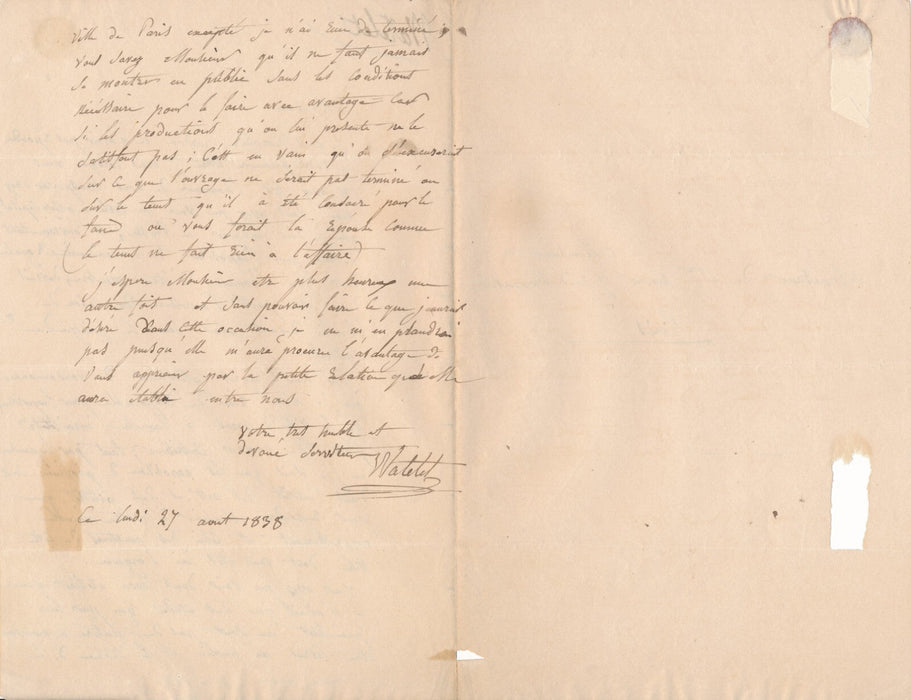 ville de Paris excepté je n'ai rien de terminé,
vous savez Monsieur qu'il ne faut jamais
se montrer en public sans les conditions
nécéssaire pour le faire avec avantage car
si les productions qu'on lui presente ne le
satisfont pas ; c'est en vain qu'on s'éxcuserait
sur ce que l'ouvrage ne serait pas terminé ou
sur le tems qu'il à été consacré pour le
faire ou vous ferait la réponse connue
(le tems ne fait rien à l'affaire)
j'espere Monsieur etre plus heureux une
autre fois et sans pouvoir faire le que j'aurais
désiré dans cette occasion, je ne m'en plaindrai
pas puisqu'elle m'aura procuré l'avantage de
vous apprécier par la petite relation qu'elle
aura établie entre nous
votre tres humble et
devoué serviteur
Watelet
Ce lundi 27 aout 1838